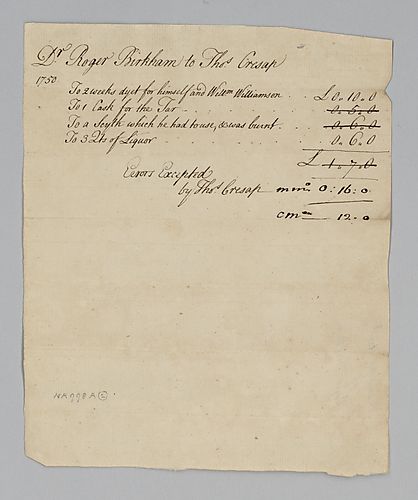 Dr. Roger Birkham to Thos. Cresap
1750
To 2 weeks dyet for himself and Willm Williamson . . . £ 0.. 10.. 0
To 1 Cask for the Tar . . . . . . . . . . 0.. 5.. 0
To a Scyth which he had to use, & was burnt . . . 0.. 6.. 0
To 3 Qts of Liquor . . . . . . . . 0.. 6.. 0
£ 1.. 7.. 0
Errors Excepted
by Thos. Cresap 0: 16: 0
12: 0